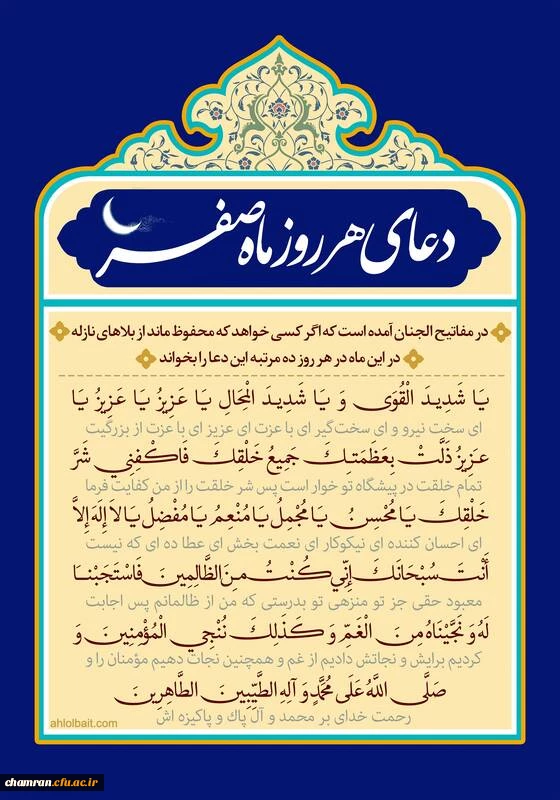 دعای هر روز ماه صفر
در مفاتیح الجنان آمده است که اگر کسی خواهد که محفوظ ماند از بلاهای نازله
در این ماه در هر روز ده مرتبه این دعا را بخواند
يَا شَدِيدَ الْقُوَى وَ يَا شَدِيدَ الْمِحَالِ يَا عَزِيزُ يَا عَزِيزُ يَا
ای سخت نیرو و ای سخت‌گیر ای با عزت ای عزیز ای با عزت از بزرگیت
عَزِيزُ ذَلَّتْ بِعَظَمَتِكَ جَمِيعُ خَلْقِكَ فَاكْفِنِي شَرَّ
تمام خلقت در پیشگاه تو خوار است پس شر خلقت را از من کفایت فرما
خَلْقِكَ يَا مُحْسِنُ يَا مُجْمِلُ يَا مُنْعِمُ يَا مُفْضِلُ يَا لَا إِلَهَ إِلَّا
ای احسان کننده ای نیکوکار ای نعمت بخش ای عطا ده ای که نیست
أَنْتَ سُبْحَانَكَ إِنِّي كُنْتُ مِنَ الظَّالِمِينَ فَاسْتَجَبْنَا
معبود حقی جز تو منزهی تو بدرستی که من از ظالمانم پس اجابت
لَهُ وَ نَجَّيْنَاهُ مِنَ الْغَمِّ وَ كَذَلِكَ نُنْجِي الْمُؤْمِنِينَ وَ
کردیم برایش و نجاتش دادیم از غم و همچنین نجات دهیم مؤمنان را و
صَلَّى اللَّهُ عَلَى مُحَمَّدٍ وَ آلِهِ الطَّيِّبِينَ الطَّاهِرِينَ
رحمت خدای بر محمد و آل پاك و پاکیزه اش
ahlolbait.com
chamran.cfu.ac.ir